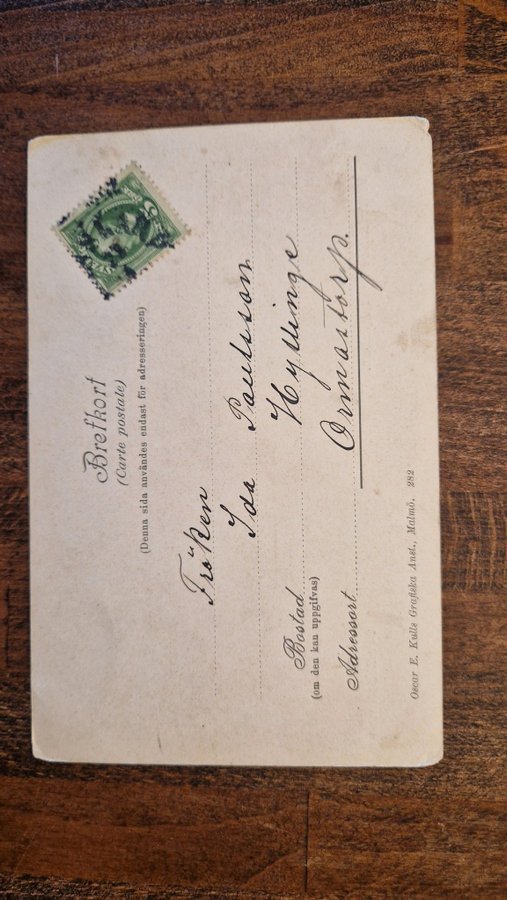 Brefkort
(Carte postale)
(Denna sida användes endast för adresseringen)
Fröken
Ida Paulsson
Bostad Hyllinge
(om den kan uppgifvas)
Adressort Ormastorp.
Oscar E. Kulls Grafiska Anst., Malmö. 282